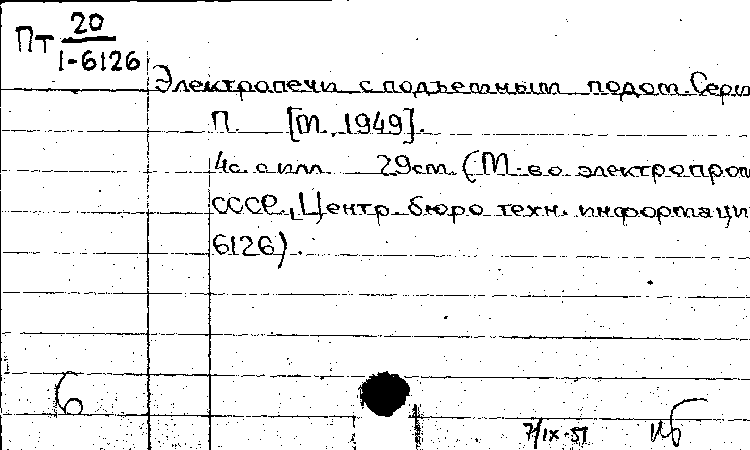 Пт 20
1-6126
Электропечи с подъемным подом. Сери
П. [М., 1949].
4с. с илл. 29см. (М-во электропром
СССР, Центр. бюро техн. информаци
6126).
6
7/IX-51